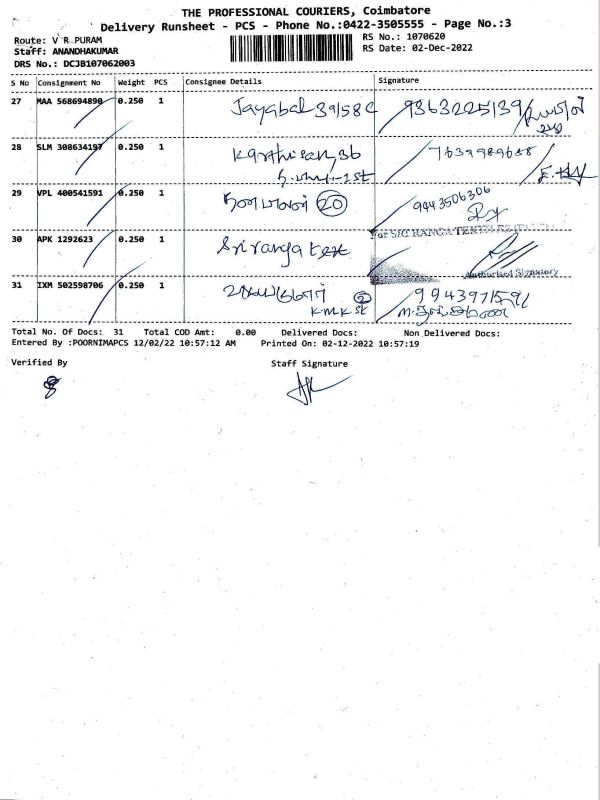 THE PROFESSIONAL COURIERS, Coimbatore
Delivery Runsheet - PCS - Phone No.:0422-3505555 - Page No.:3
Route: V R PURAM
RS No.: 1070620
Staff: ANANDHAKUMAR
RS Date: 02-Dec-2022
DRS No.: DCJB107062003
S No Consignment No Weight PCS Consignee Details Signature
27 MAA 568694890 0.250 1 Jayabal 39/58C 9363225139
28 SLM 308634197 0.250 1 Karthisan, 36 7639989688
1st
29 VPL 400541591 0.250 1 20 9443506306
30 APK 1292623 0.250 1 Sriranga tex For SRI RANGA TEXTILES
Authorised Signatory
31 IXM 502598706 0.250 1 2
K-M-K st
Total No. Of Docs: 31 Total COD Amt: 0.00 Delivered Docs: Non Delivered Docs:
Entered By :POORNIMAPCS 12/02/22 10:57:12 AM Printed On: 02-12-2022 10:57:19
Verified By Staff Signature